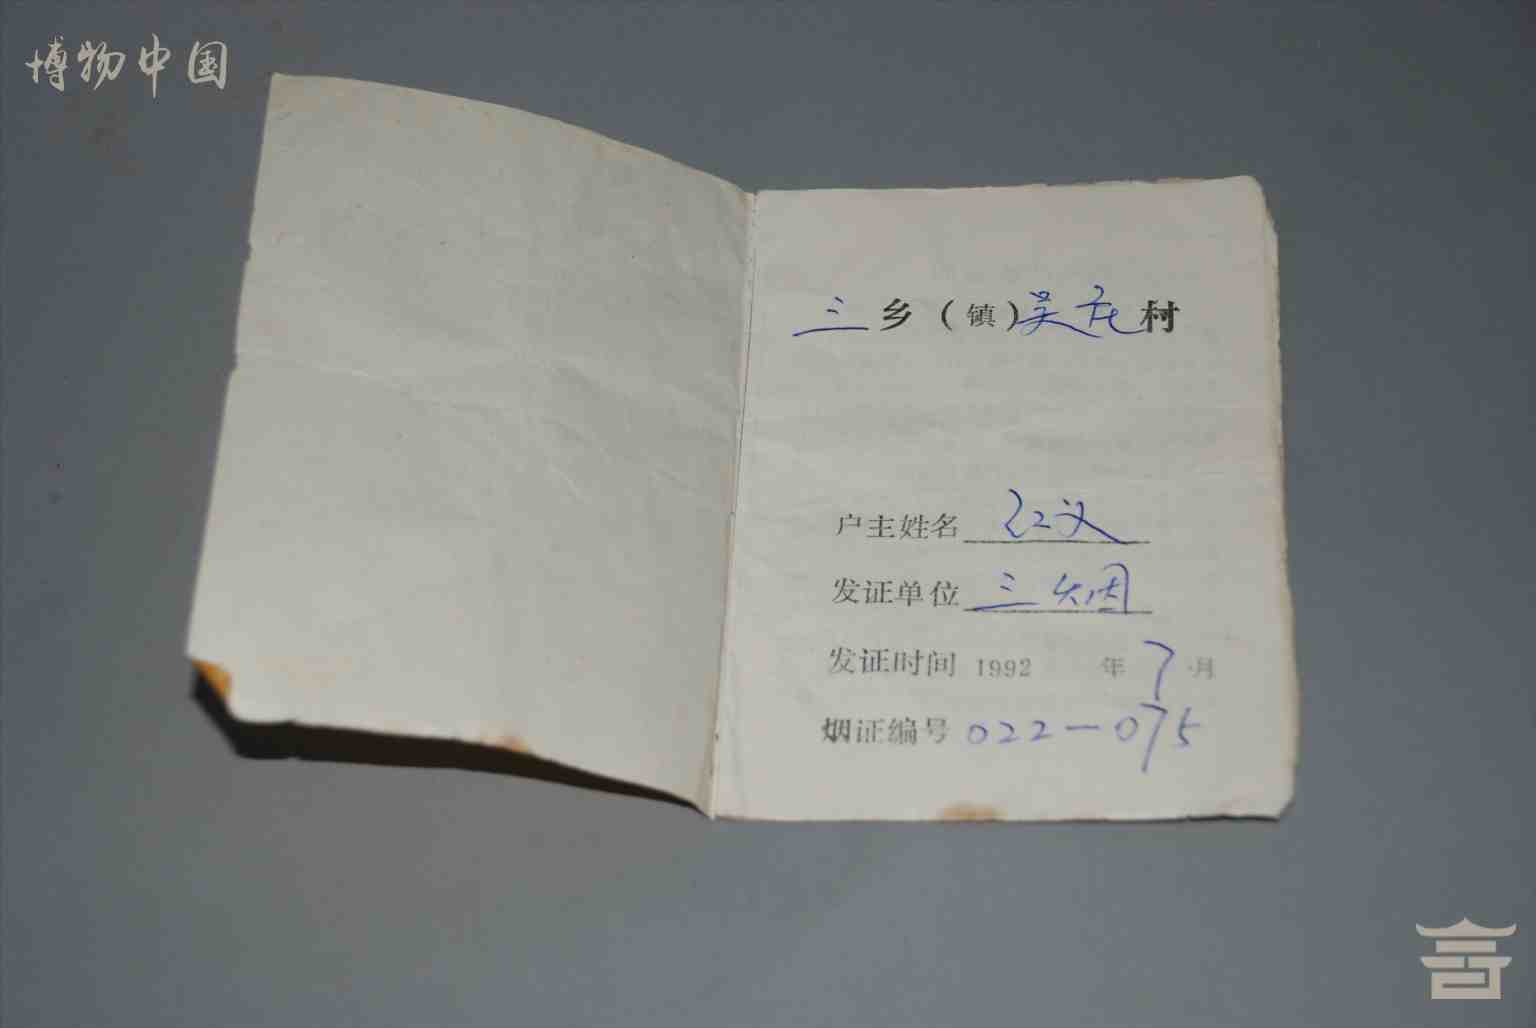 博物中国
三乡(镇)吴庄村
户主姓名 红义
发证单位 三烟
发证时间 1992 年7月
烟证编号 022-075